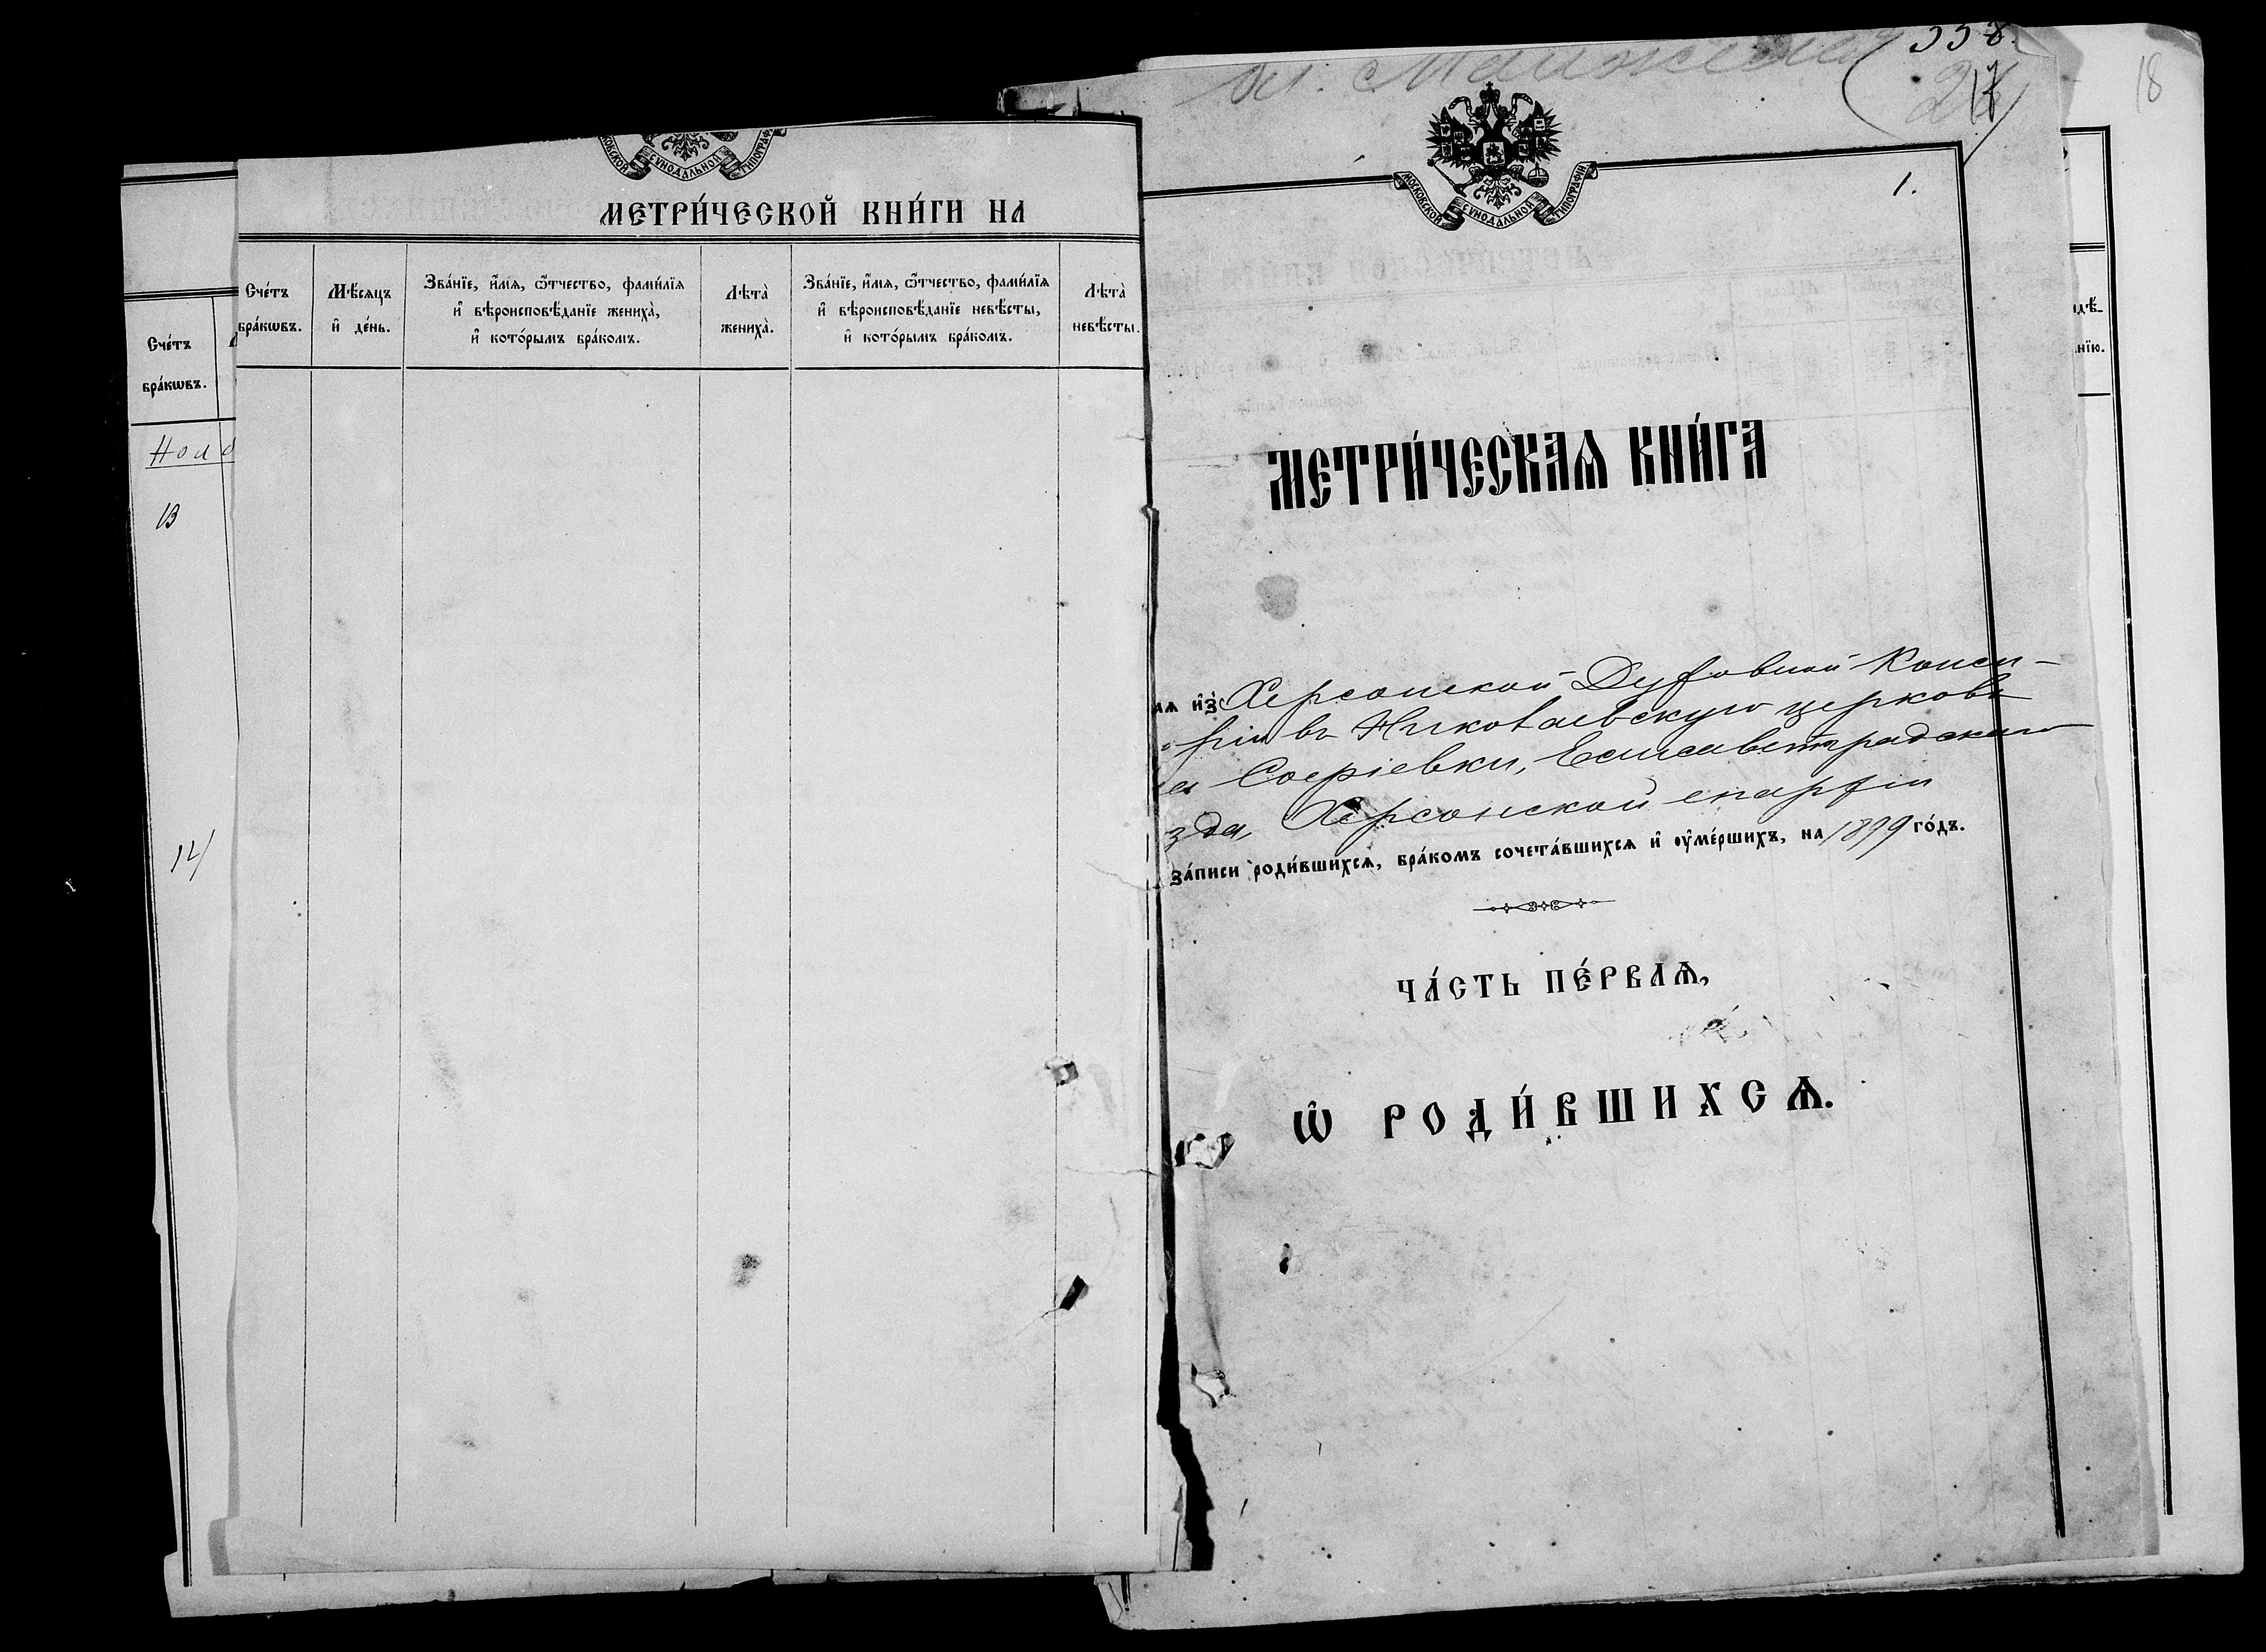 Счéтъ
брáкѡвъ.
13
14
СУНОДАЛЬНОЙ
ТИПОГРАФ
МЕТРИ́ЧЕСКОЙ КНИ́ГИ НА
Счéтъ
брáкѡвъ.
Мѣ́сяцъ
и҆ дéнь.
Звáнїе, и҆́мѧ, ѻ҆́тчество, фами́лїѧ
и҆ вѣроисповѣ́данїе женихà,
и҆ котóрымъ брáкомъ.
Лѣтà
женихà.
Звáнїе, и҆́мѧ, ѻ҆́тчество, фами́лїѧ
и҆ вѣроисповѣ́данїе невѣ́сты,
и҆ котóрымъ брáкомъ.
Лѣтà
невѣ́сты.
358.
18
1.
МОСКОВСКОЙ СУНОДАЛЬНОЙ ТИПОГРАФІИ
МЕТРИ́ЧЕСКАѦ КНИ́ГА
аѧ и҆з̾ Херсонской Духовной Конси-
рiи въ Николаевскую церковь
Софіевки, Елисаветградскаго
зда, Херсонской епархіи
зáписи роди́вшихсѧ, брáкомъ сочетáвшихсѧ и҆ ᲂу҆мéршихъ, на 1899 гóдъ.
ЧÁСТЬ ПÉРВАѦ,
Ѡ҆ РОДИ́ВШИХСѦ.
дѣ-
нїю.